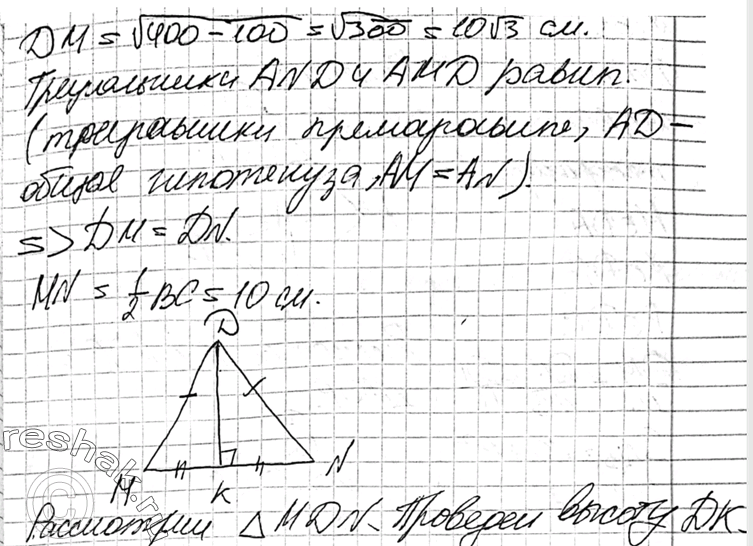 DM = √400-100 = √300 = 10√3 см.
Треугольники AND и AMD равны
(треугольники прямоугольные, AD -
общая гипотенуза, AM = AN).
=> DM = DN.
MN = 1/2 BC = 10 см.
D
reshak.ru
M K N
Рассмотрим △ MDN. Проведем высоту DK.